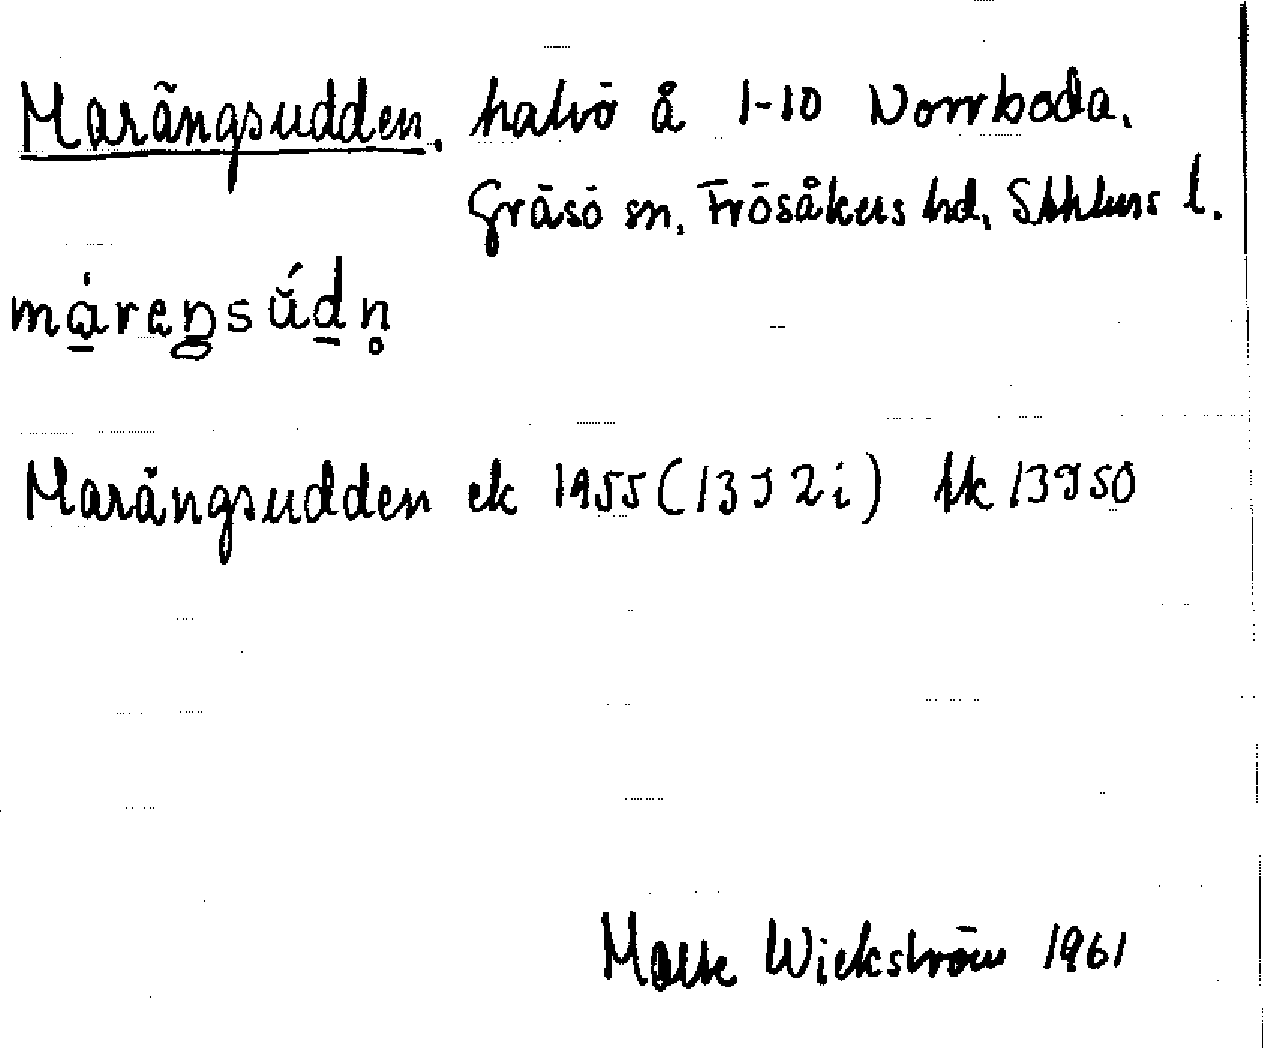 Marängsudden, halvö å 1-10 Norrboda,
Gräsö sn, Frösåkers hd, Sthlms l.
máreŋsŭ́dn̥
Marängsudden ek 1955 (13J 2i) hk 13950
Malte Wickström 1961